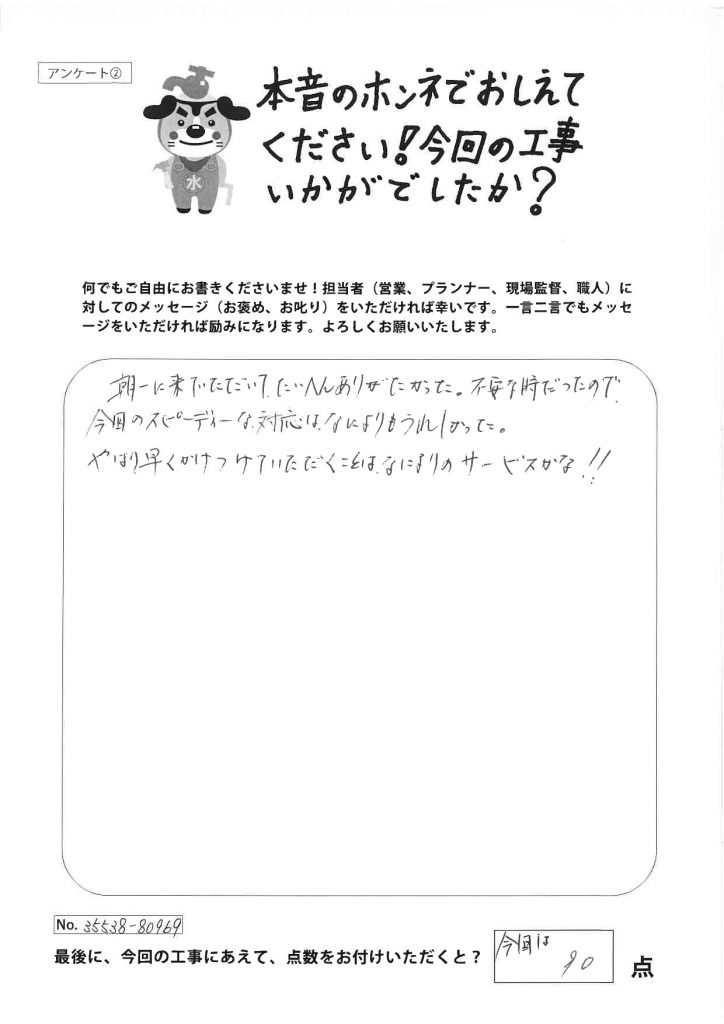 アンケート②
本音のホンネでおしえて
ください!今回の工事
いかがでしたか?
水
何でもご自由にお書きくださいませ!担当者(営業、プランナー、現場監督、職人)に
対してのメッセージ(お褒め、お叱り)をいただければ幸いです。一言二言でもメッセ
ージをいただければ励みになります。よろしくお願いいたします。
朝一に来ていただいて、たいへんありがたかった。不安な時だったので、
今回のスピーディーな対応は、なによりもうれしかった。
やはり早くかけつけていただくことは、なによりのサービスかな!!
No. 35538-80969
最後に、今回の工事にあえて、点数をお付けいただくと?
今回は
90
点